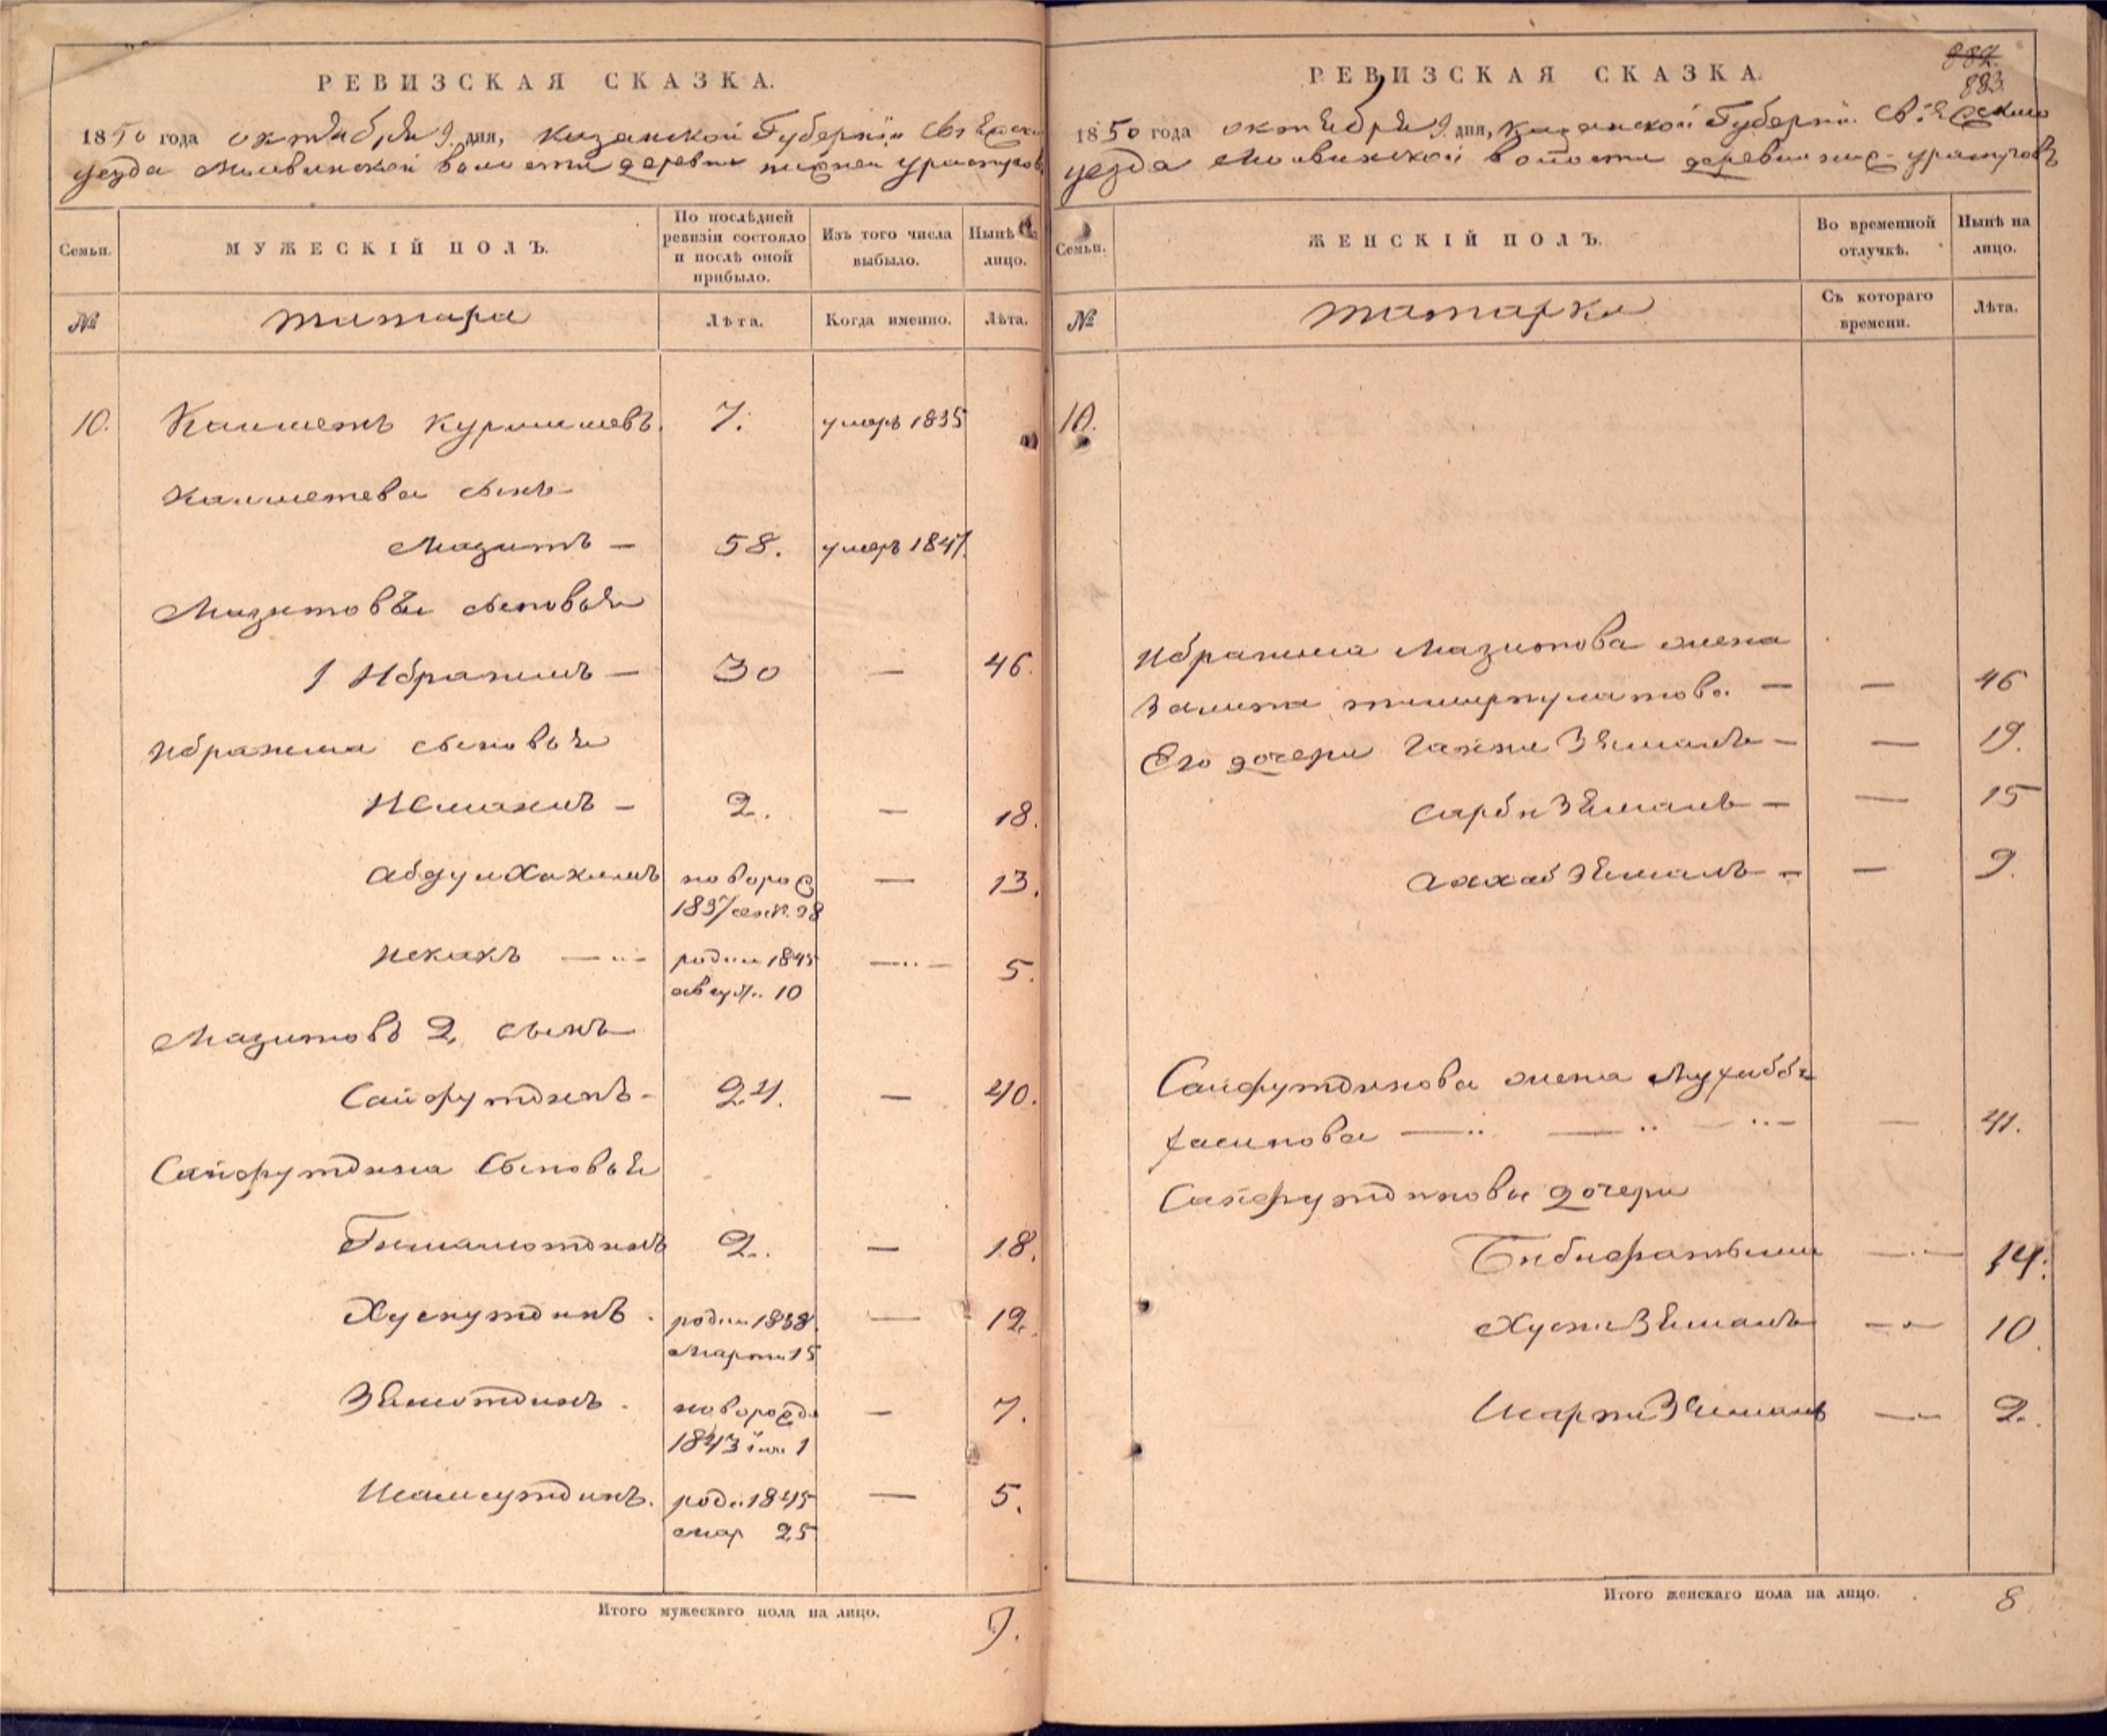 РЕВИЗСКАЯ СКАЗКА.
1850 года октября 9 дня, Казанской Губернiи Свiяжска
уезда Молвинской волости деревни нижней ураспугов
Семьи.
МУЖЕСКIЙ ПОЛЪ.
По послѣдней ревизiи состояло и послѣ оной прибыло.
Изъ того числа выбыло.
Нынѣ на лицо.
№
татара
Лѣта.
Когда именно.
Лѣта.
10. Калметь Курмышевъ. 7. умеръ 1835
Калметева сынъ
Мазитъ — 58. умеръ 1847.
Мазитовы сыновья
1 Ибрагимъ — 30 — 46.
Ибрагима сыновья
Исмагилъ — 2. — 18.
АбдулХакимъ новорож — 13.
1837 сент. 28
Исхакъ — родил 1845 — 5.
август. 10
Мазитовъ 2 сынъ
Сайфутдинъ — 24. — 40.
Сайфутдина Сыновья
Гималютдинъ 2. — 18.
Хуснутдинъ . родил 1838. — 12.
Марта 15
Зялютдинъ . новорожд — 7.
1843 iюн 1
Шамсутдинъ. роди 1845 — 5.
мар 25
Итого мужескаго пола на лицо. 9.
882.
883.
РЕВИЗСКАЯ СКАЗКА.
1850 года октября 9 дня, Казанской Губернiи. Свiяжскаго
уезда Молвинской волости деревни ниж. ураспуговъ
Семьи.
ЖЕНСКIЙ ПОЛЪ.
Во временной отлучкѣ.
Нынѣ на лицо.
№
татарки
Съ котораго времени.
Лѣта.
10.
Ибрагима Мазитова жена
Залита тимиркулатова — — 46
Его дочери ГайниЗямалъ — — 19.
СарбиЗямалъ — — 15
Зямалъ — — 9.
Сайфутдинова жена Мухибба
хасанова — — — — 41.
Сайфутдиновы дочери
Бибифатыма — 14.
ХусниЗямалъ — 10.
Зямалъ — 2.
Итого женскаго пола на лицо. 8